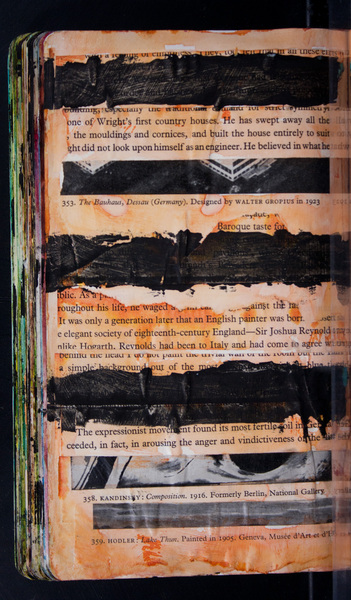 building, especially the traditional demand for strict symmetry.
one of Wright's first country houses. He has swept away all the
the mouldings and cornices, and built the house entirely to suit
ght did not look upon himself as an engineer. He believed in what he
353. The Bauhaus, Dessau (Germany). Designed by WALTER GROPIUS in 1923
Baroque taste for
blic. As a p
roughout his life, he waged a against the
It was only a generation later that an English painter was born.
e elegant society of eighteenth-century England—Sir Joshua Reynold
nlike Hogarth, Reynolds had been to Italy and had come to agree
behind the head I do not paint the trivial wall of the room but
a simple background out of the
The expressionist movement found its most fertile soil in Ger
ceeded, in fact, in arousing the anger and vindictiveness of the
358. KANDINSKY: Composition. 1916. Formerly Berlin, National Gallery.
359. HODLER: Lake Thun. Painted in 1905. Geneva, Musée d'Art et d'H